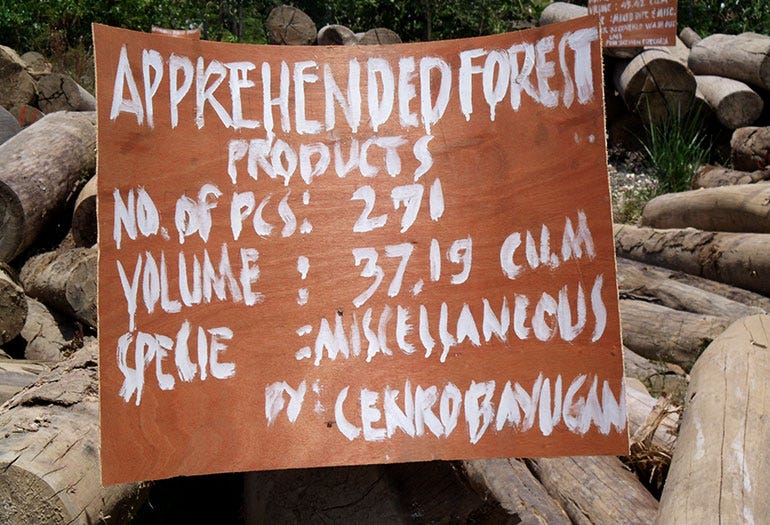 APPREHENDED FOREST
PRODUCTS
NO. OF PCS: 271
VOLUME : 37.19 CU.M
SPECIE : MISCELLANEOUS
BY: CENRO BAYUGAN